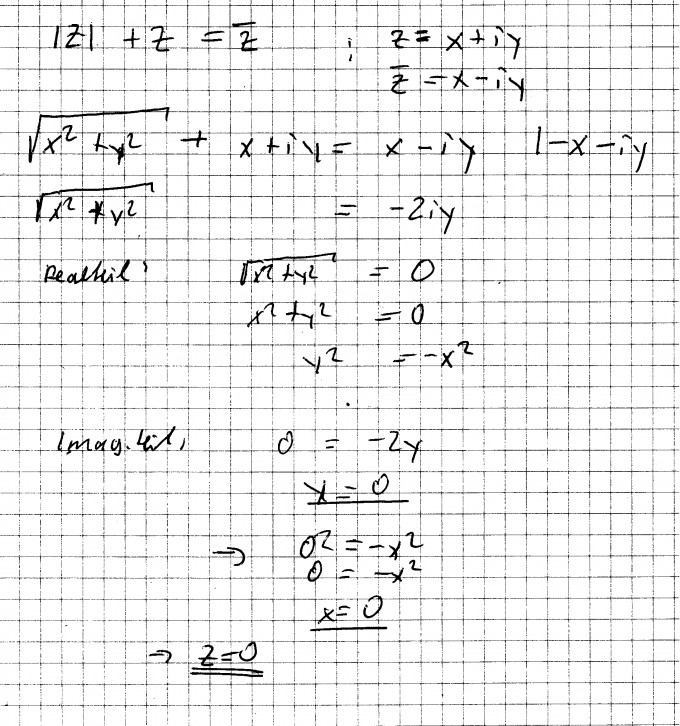 |z| + z = z̅ ; z = x+iy
z̅ = x-iy
√x² + y² + x+iy = x-iy |-x-iy
√x² + y² = -2iy
Realteil: √x²+y² = 0
x²+y² = 0
y² = -x²
Imag.teil: 0 = -2y
y = 0
→ 0² = -x²
0 = -x²
x=0
→ z=0